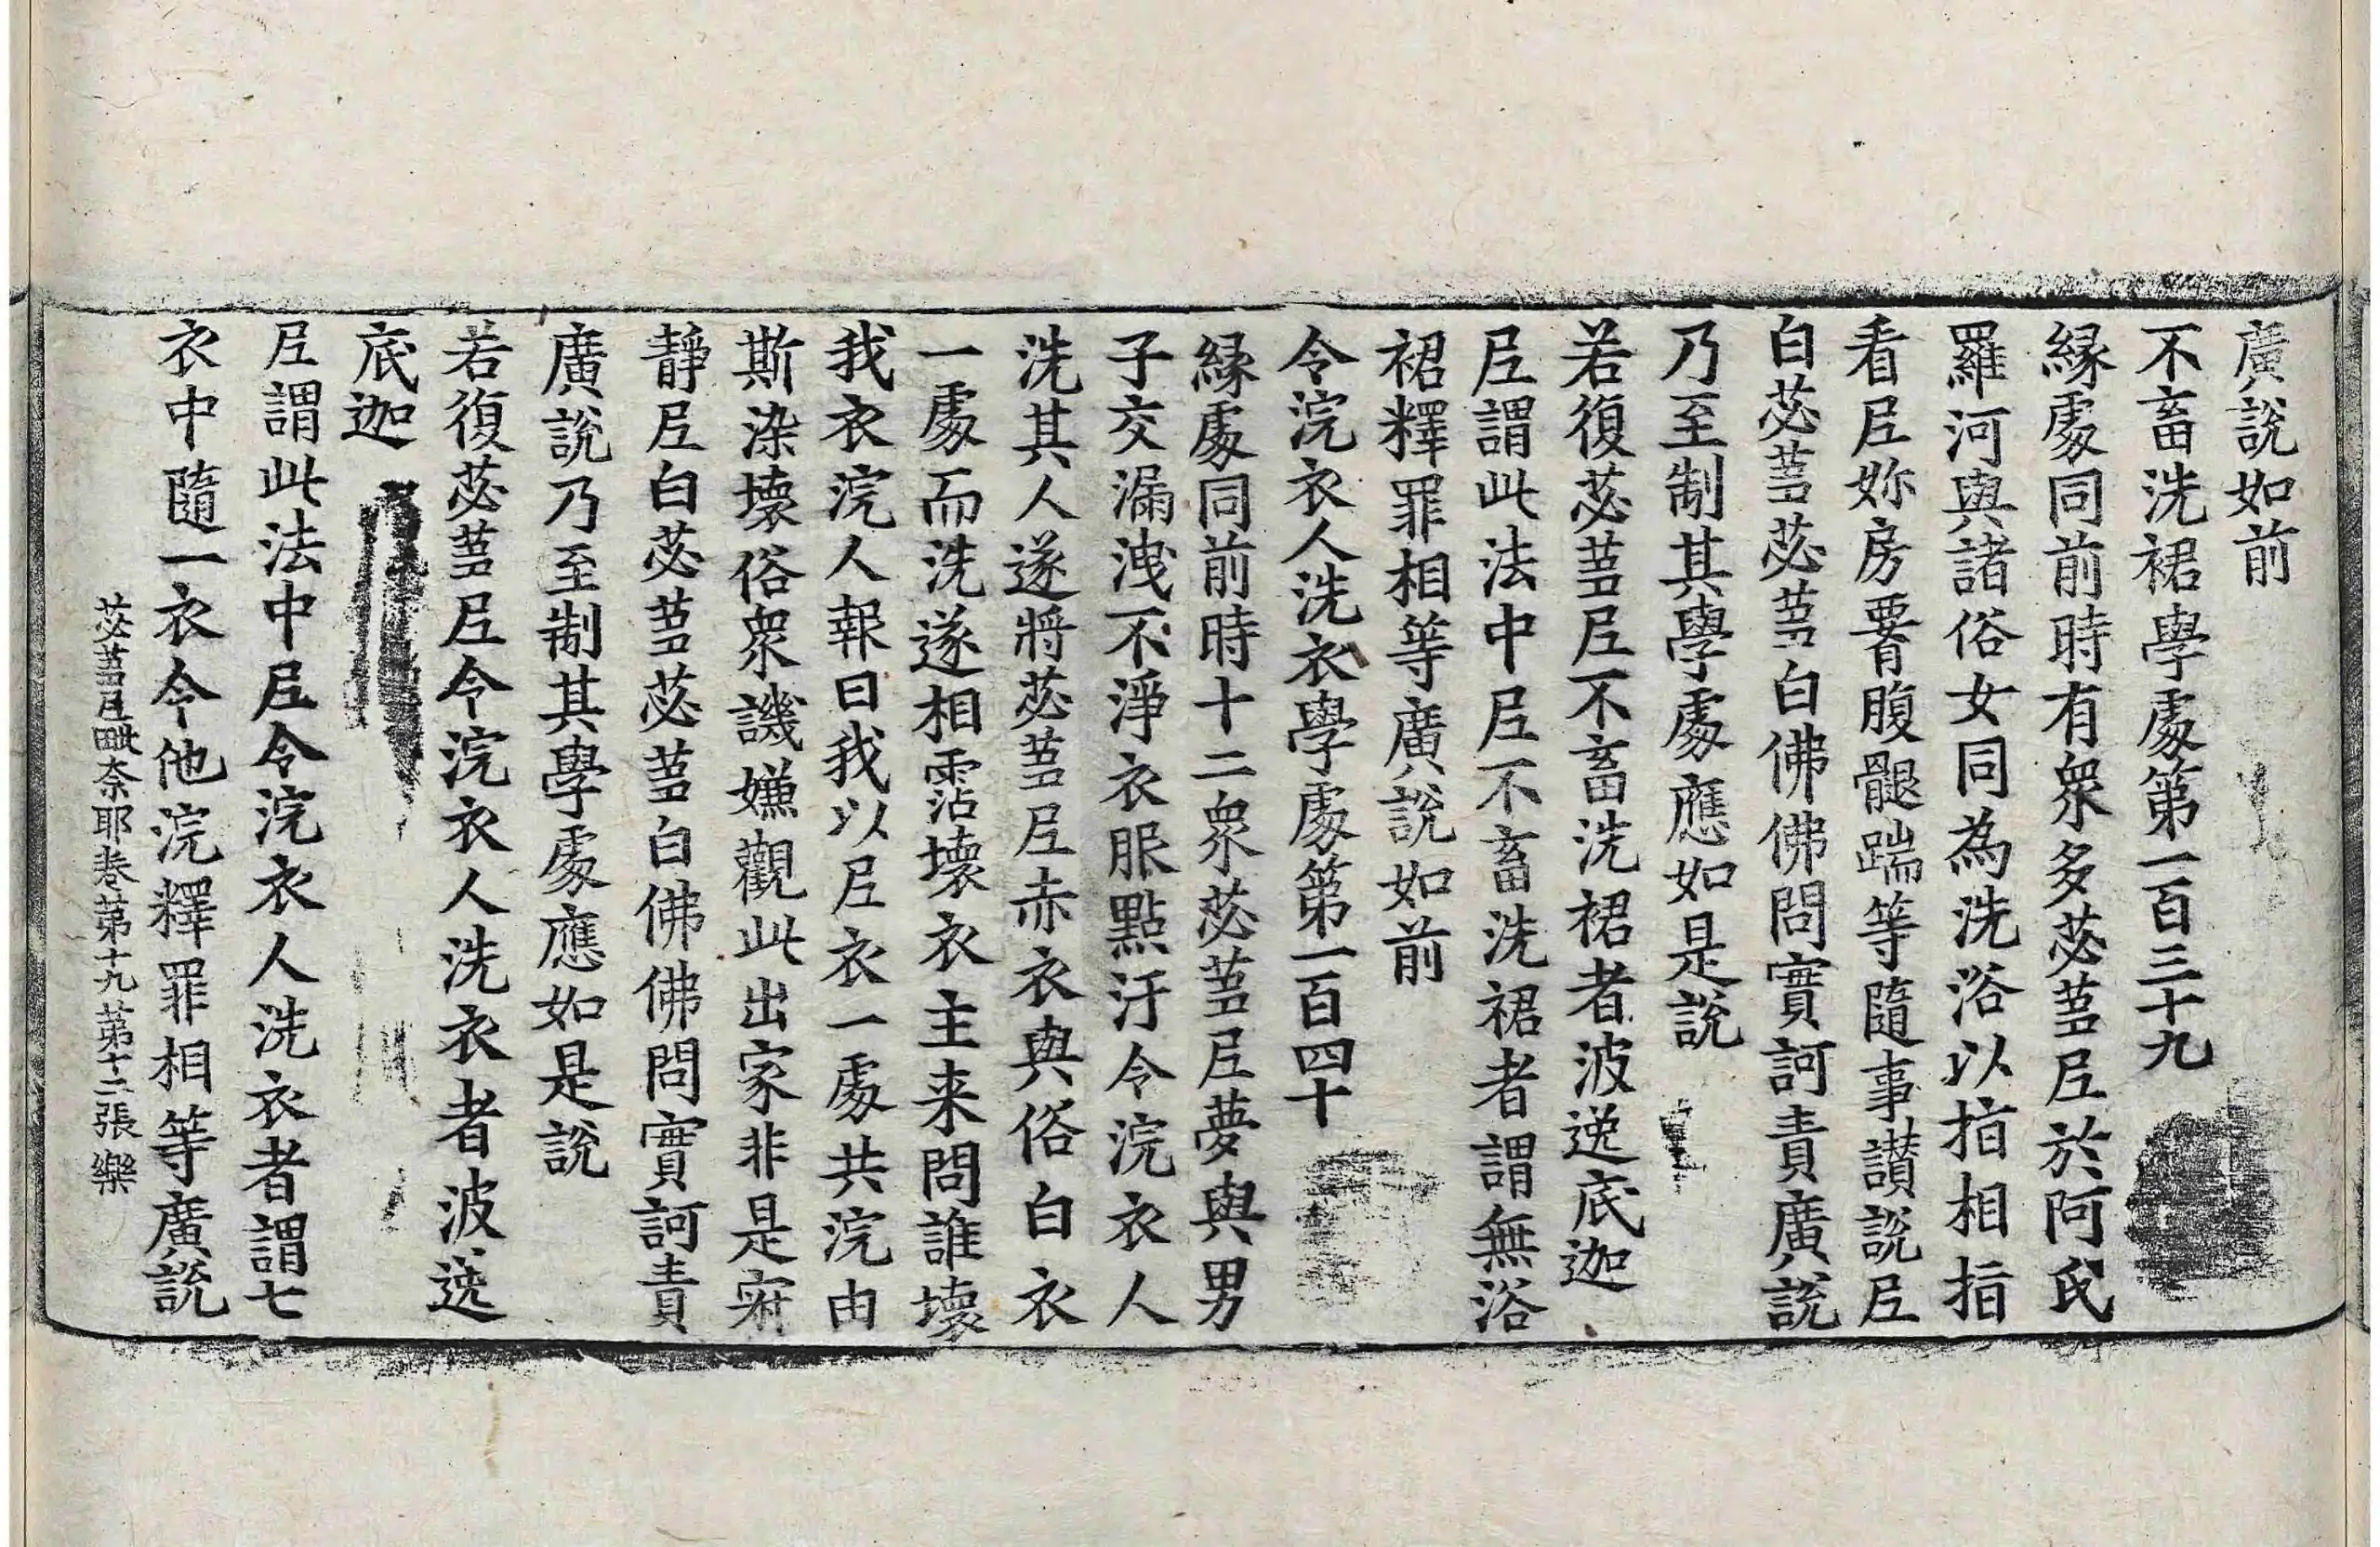 廣說如前
不畜洗裙學處第一百三十九
緣處同前時有衆多苾蒭尼於阿氏
羅河與諸俗女同為洗浴以指相指
看尼妳房𦝫腹䏶踹等隨事讃說尼
白苾蒭苾蒭白佛佛問實訶責廣說
乃至制其學處應如是說
若復苾蒭尼不畜洗裙者波逸底迦
尼謂此法中尼不畜洗裙者謂無浴
裙釋罪相等廣說如前
令浣衣人洗衣學處第一百四十
緣處同前時十二衆苾蒭尼夢與男
子交漏洩不淨衣服點汙令浣衣人
洗其人遂將苾蒭尼赤衣與俗白衣
一處而洗遂相霑壞衣主来問誰壞
我衣浣人報曰我以尼衣一處共浣由
斯染壞俗衆譏嫌觀此出家非是寂
靜尼白苾蒭苾蒭白佛佛問實訶責
廣說乃至制其學處應如是說
若復苾蒭尼令浣衣人洗衣者波逸
底迦
尼謂此法中尼令浣衣人洗衣者謂七
衣中隨一衣令他浣釋罪相等廣說
苾蒭尼毗奈耶卷第十九 第十二張 樂